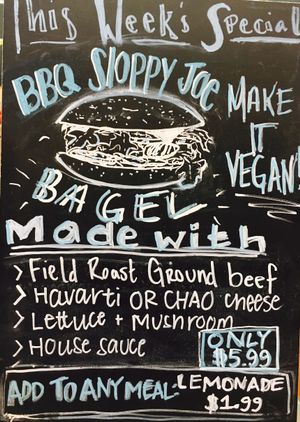 This Week's Special
BBQ Sloppy Joe
MAKE
IT
VEGAN!
BAGEL
Made with
> Field Roast Ground beef
> Havarti OR CHAO cheese
> Lettuce + Mushroom
> House sauce
ONLY
$5.99
ADD TO ANY MEAL. LEMONADE
$1.99